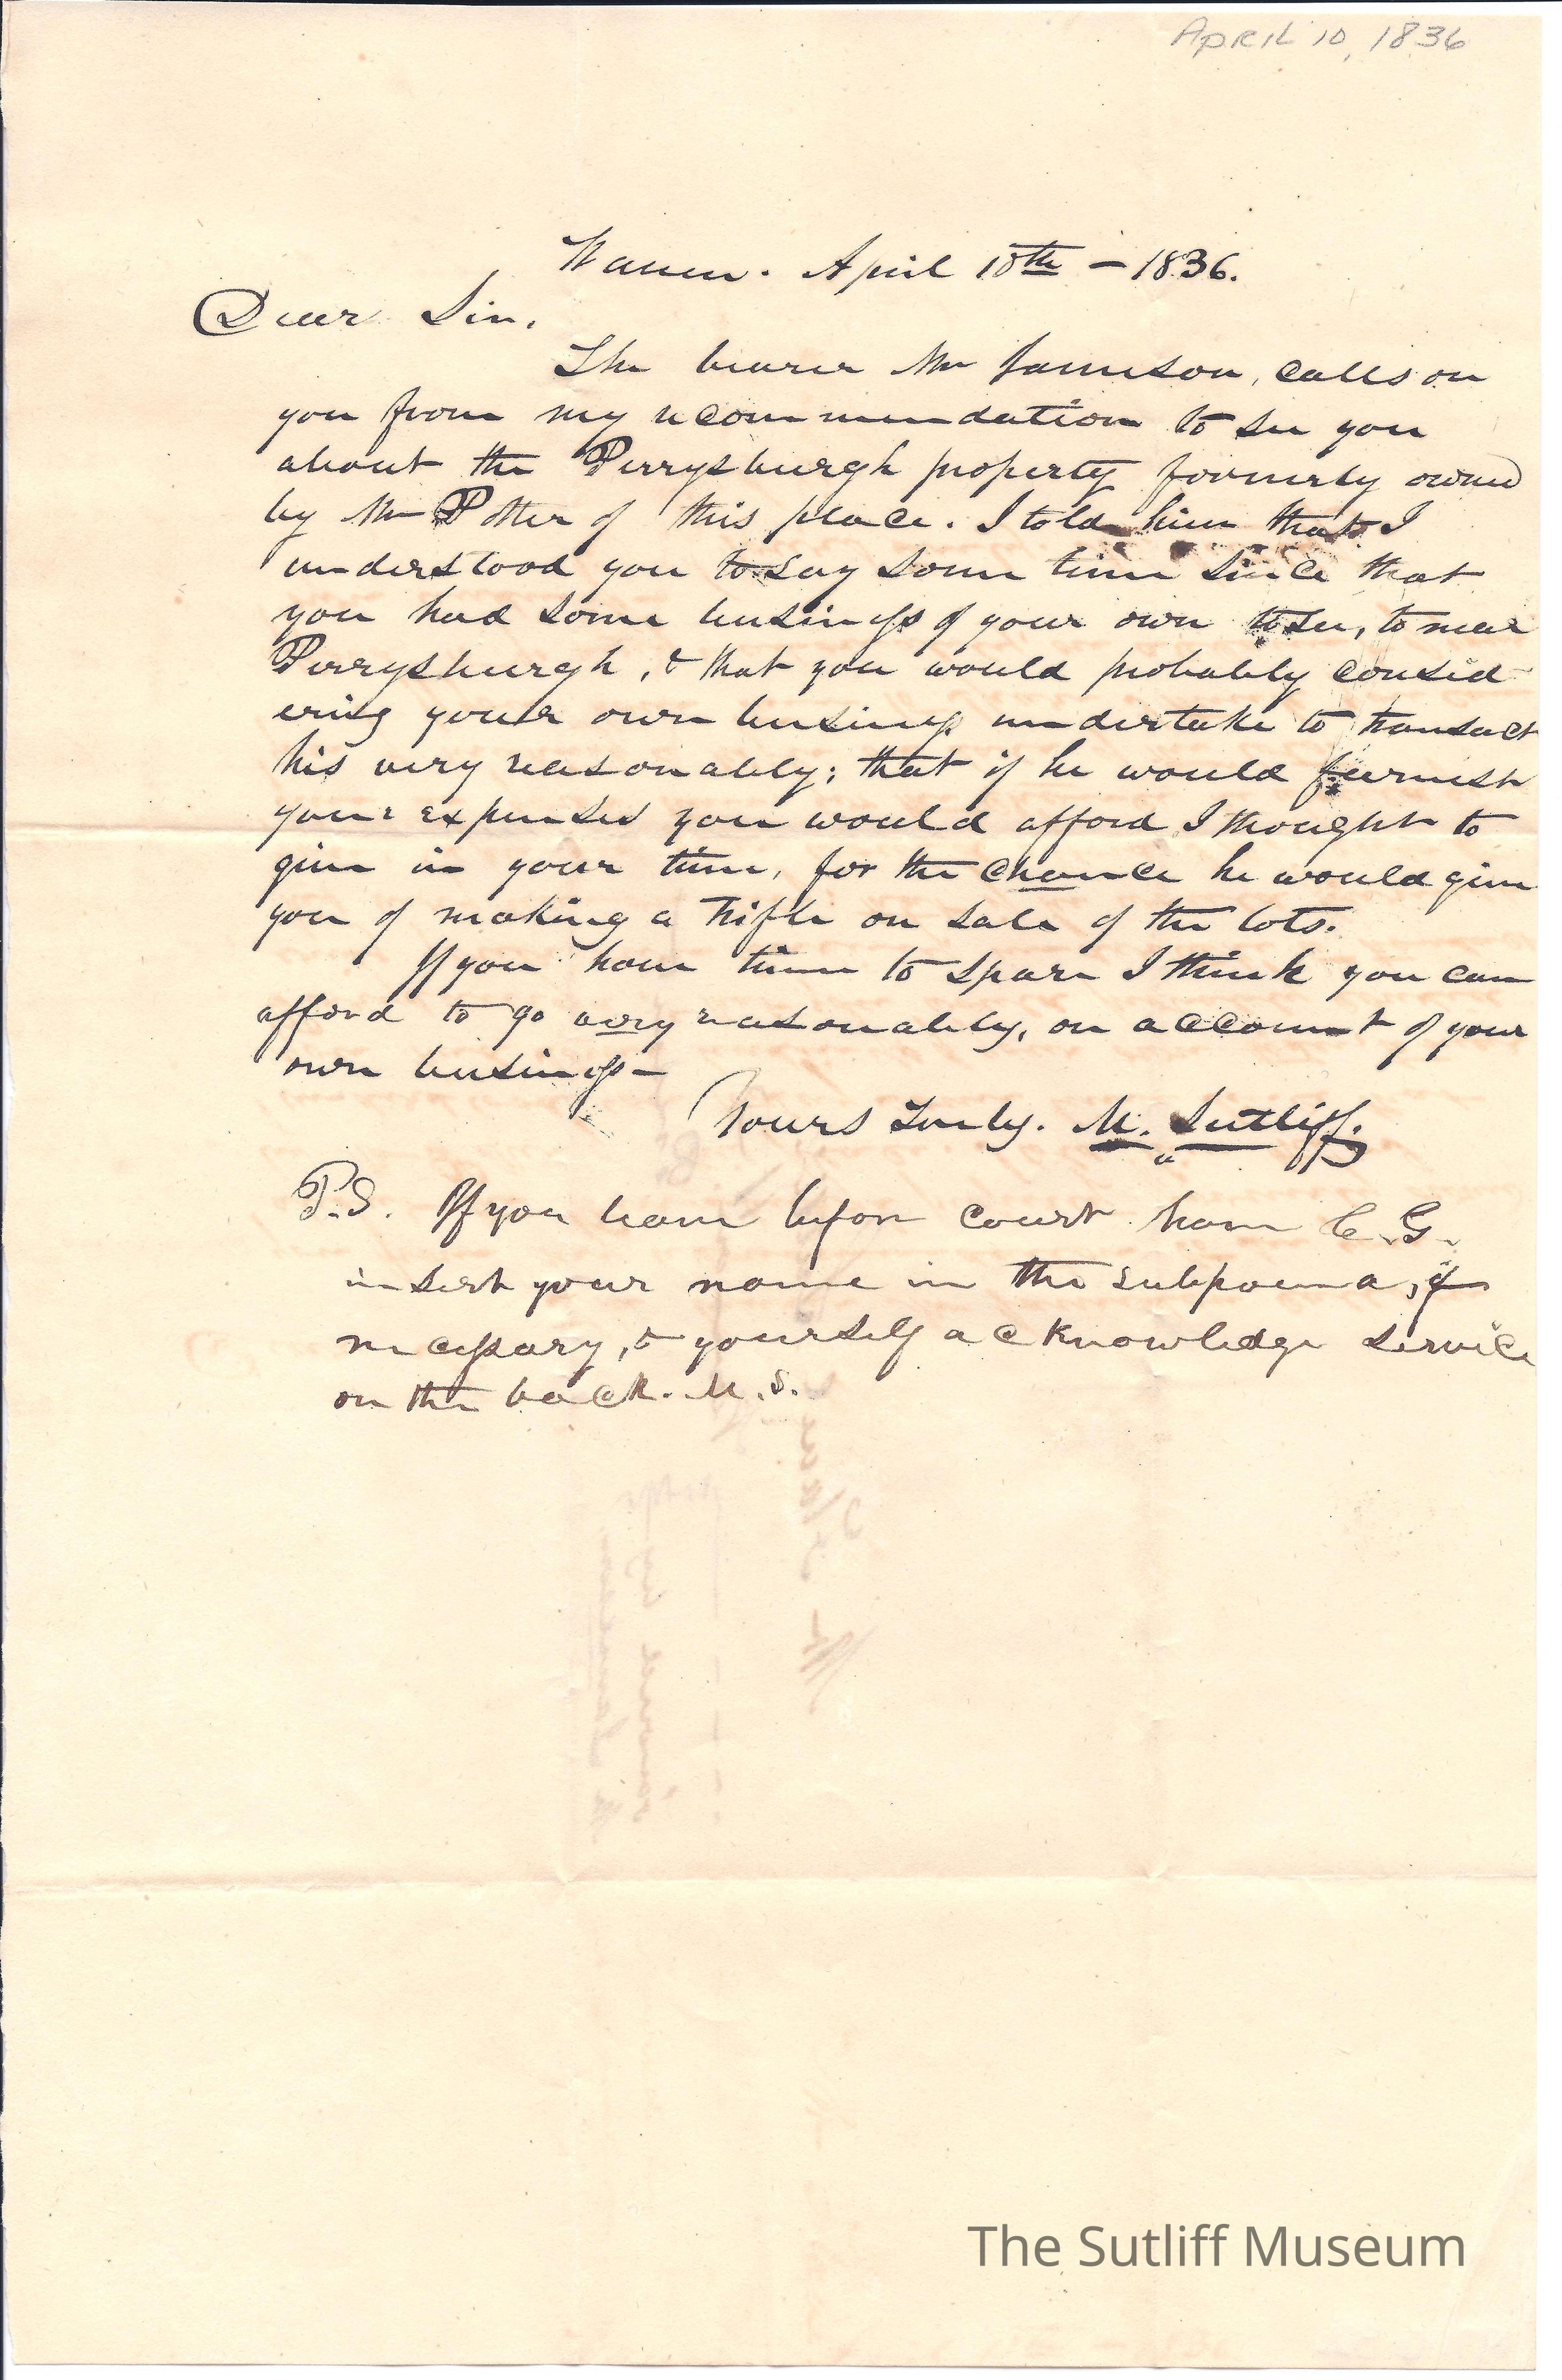 APRIL 10, 1836
Warren. April 10th – 1836.
Dear Sir,
The bearer Mr Jamieson, calls on
you from my recommendation to see you
about the Perrysburgh property formerly owned
by Mr Potter of this place. I told him that I
understood you to say some time since that
you had some business of your own to see, to near
Perrysburgh, & that you would probably consid
ering your own business undertake to transact
his very reasonably; that if he would furnish
your expenses you would afford I thought to
give in your time, for the chance he would give
you of making a trifle on sale of the lots.
If you have time to spare I think you can
afford to go very reasonably, on account of your
own business –
Yours Truly. M. Sutliff.
P.S. If you leave before court have C. G.
insert your name in the subpoena, if
necessary, & yourself acknowledge service
on the back. M. S.
The Sutliff Museum